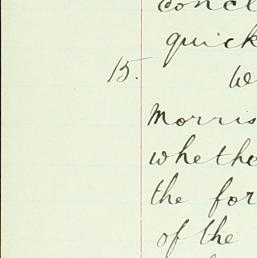 concl
quick
15. W
Morris
whethe
the for
of the